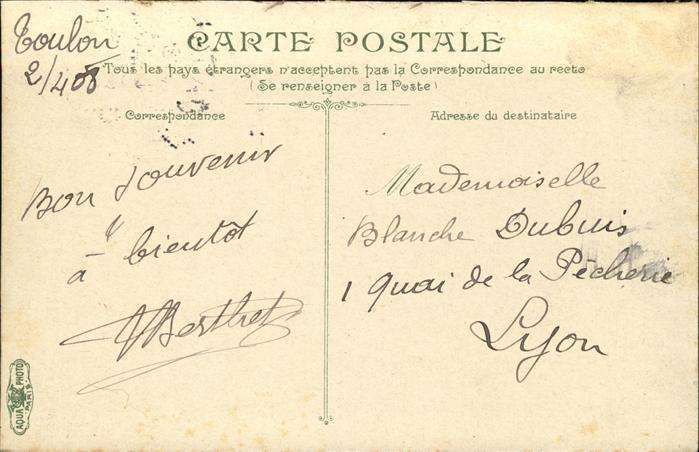 Toulon
2/4 08
CARTE POSTALE
Tous les pays étrangers n'acceptent pas la Correspondance au recto
(Se renseigner à la Poste)
Correspondance
Bon souvenir
à bientôt
Berthet
Adresse du destinataire
Mademoiselle
Blanche Dubuis
1 Quai de la Pêcherie
Lyon
AQUA PHOTO
PARIS